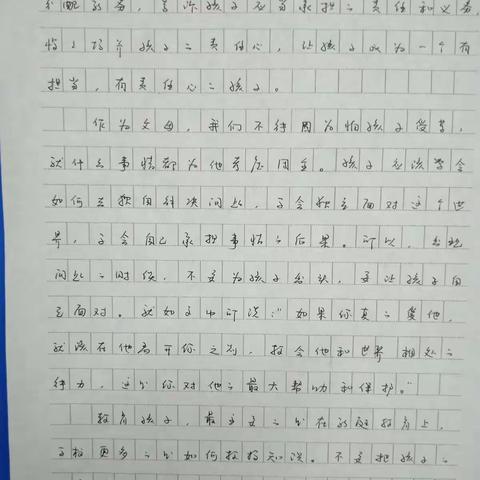 分配的务，告诉孩子应当承担之责任和义务，
悟上培养孩子之责任心，让孩子成为一个有
担当，有责任心之孩子。
作为父母，我们不得因为怕孩子受苦，
就什么事情都为他考虑周全。孩子应该学会
如何去独自解决问题，学会独立面对这个世
界，学会自己承担事情之后果。所以，出现
问题之时候，不要为孩子出头，要让孩子自
己面对。就如文中所说："如果你真之爱他，
就该在他离开你之前，教会他和世界相处之
能力，这是你对他之最大帮助和保护。"
教育孩子，最主要之是在家庭教育上，
学校更多之是如何教授知识。不要把孩子之